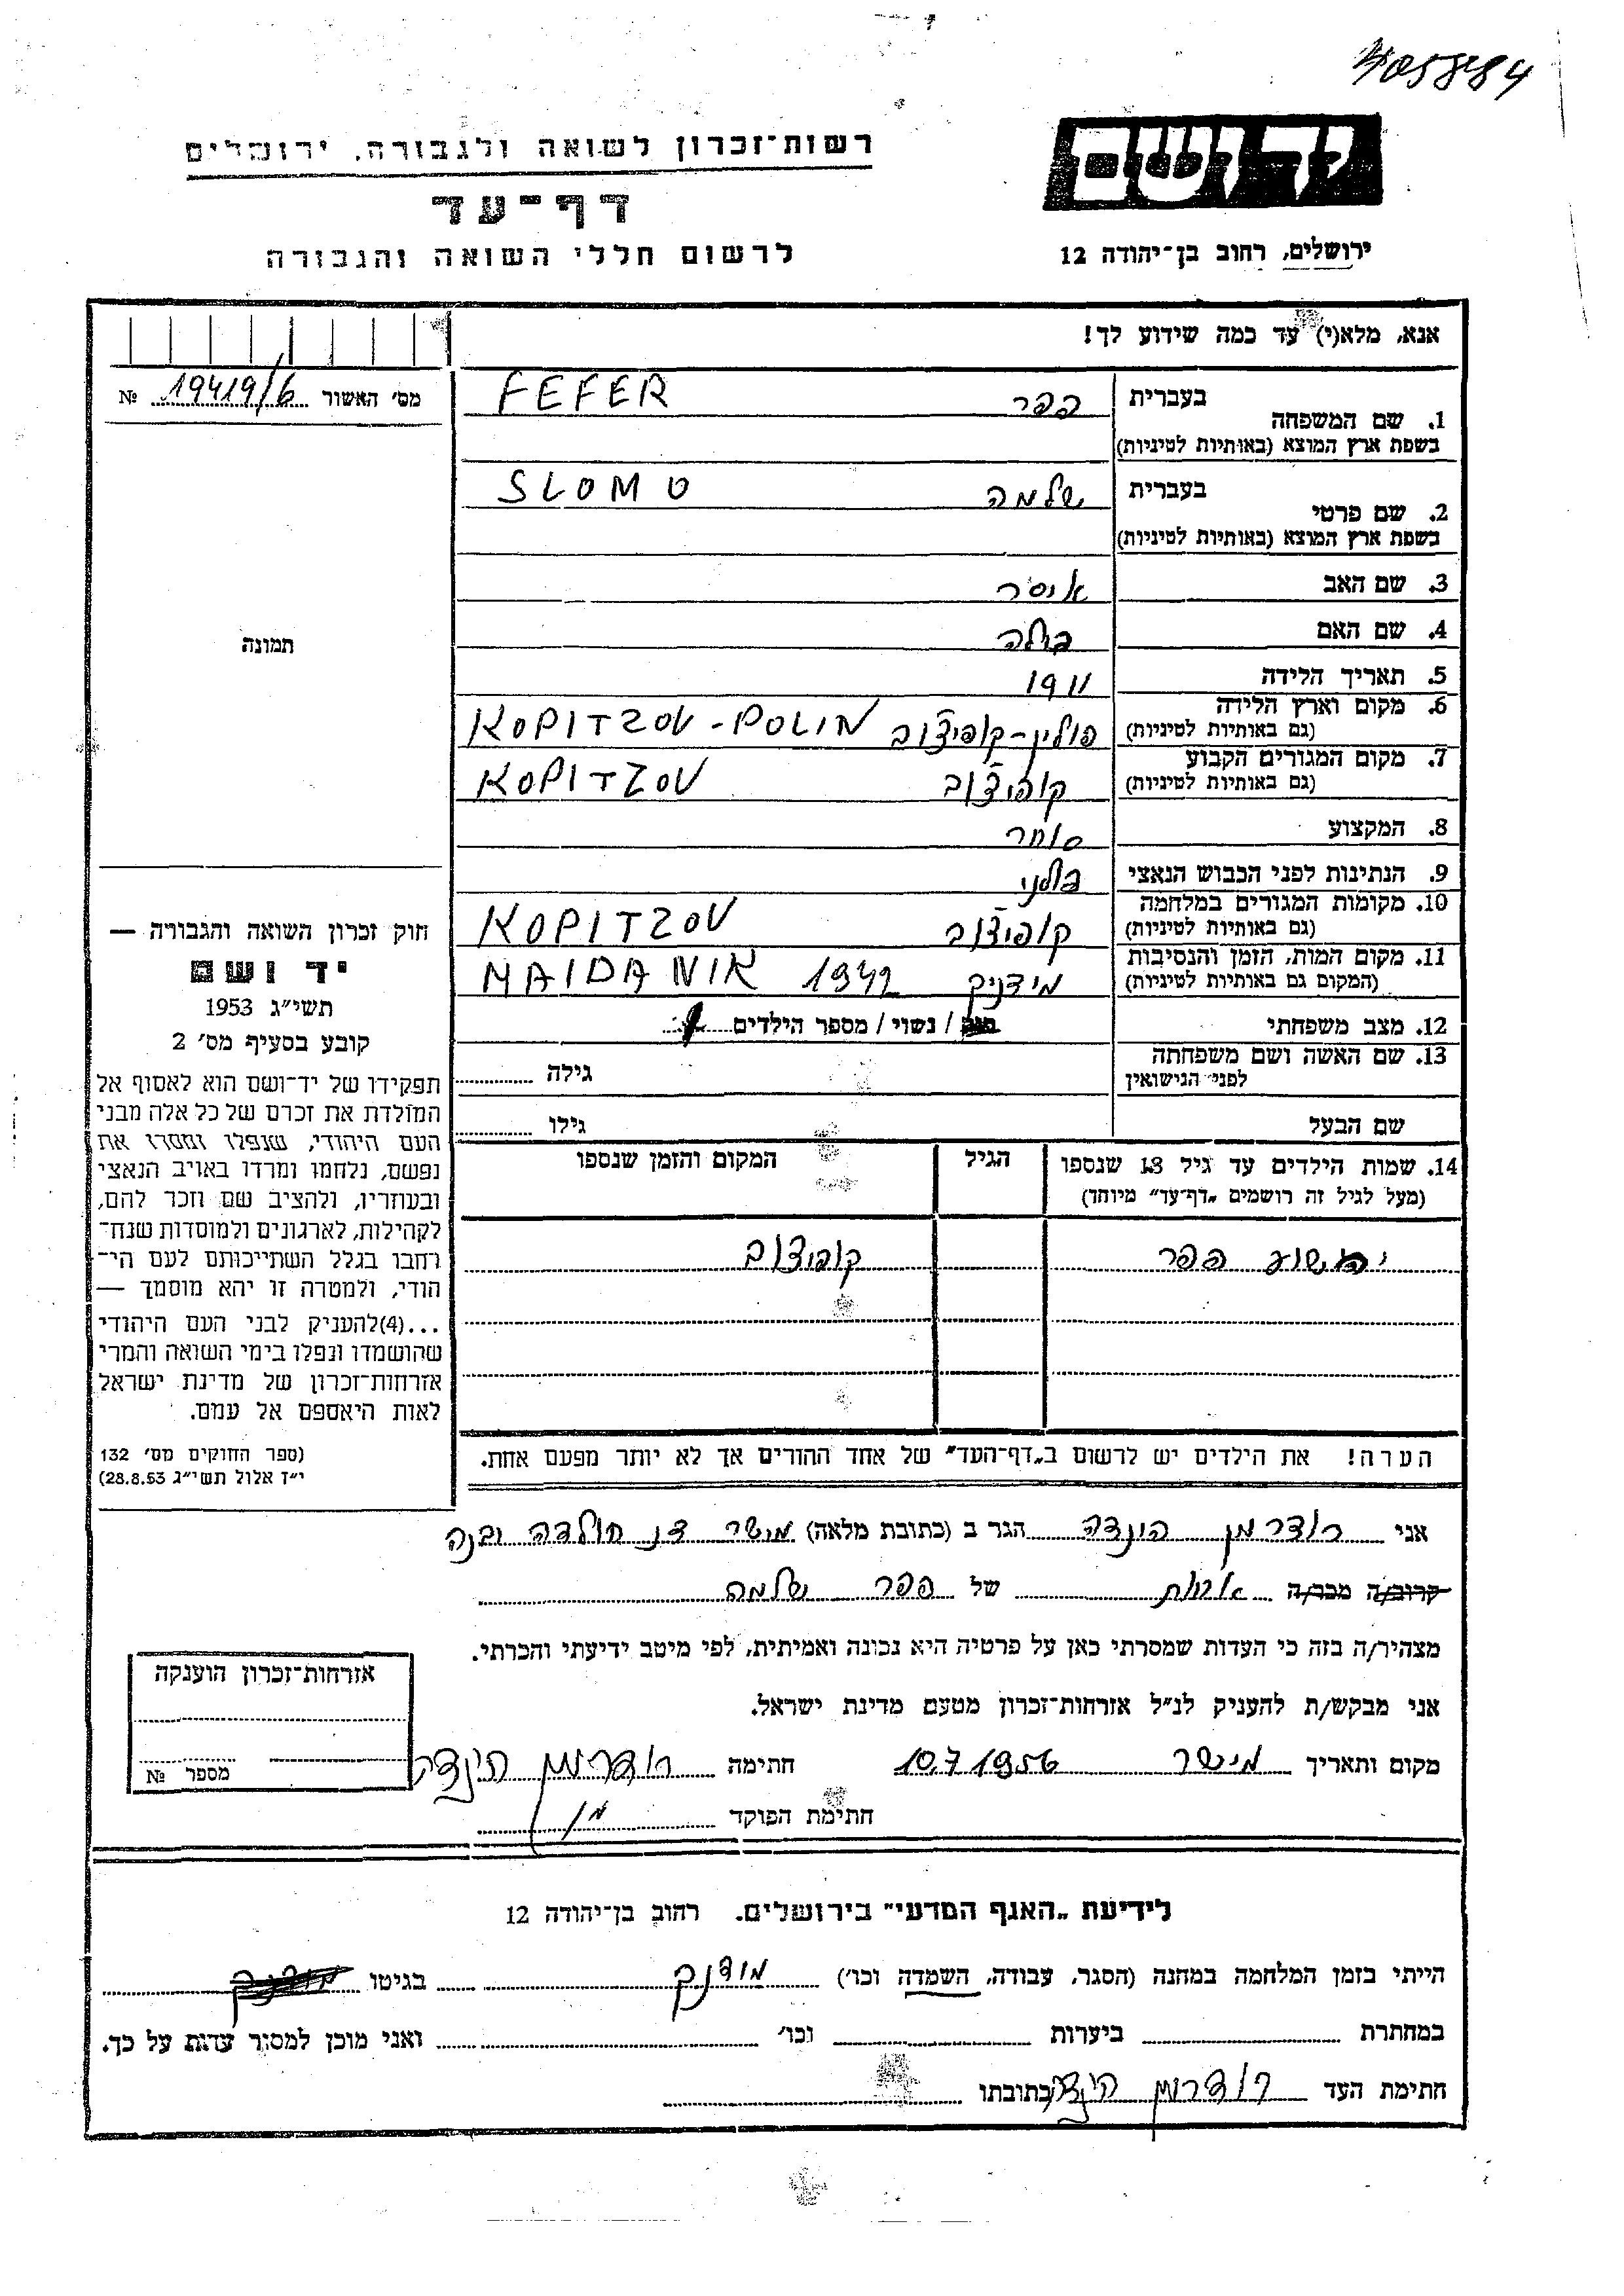 רשות־זכרון לשואה ולגבורה, ירושלים
דף־עד
לרשום חללי השואה והגבורה
יד ושם
ירושלים, רחוב בן־יהודה 12
אנא, מלא(י) עד כמה שידוע לך!
מס׳ האשור 19419/6 №
1. שם המשפחה
בעברית פפר FEFER
בשפת ארץ המוצא (באותיות לטיניות)
2. שם פרטי
בעברית שלמה SLOMO
בשפת ארץ המוצא (באותיות לטיניות)
3. שם האב איסר
4. שם האם בילה
5. תאריך הלידה 1911
6. מקום וארץ הלידה פולין-קופיצוב KOPITZOV-POLIN
(גם באותיות לטיניות)
7. מקום המגורים הקבוע קופיצוב KOPITZOV
(גם באותיות לטיניות)
8. המקצוע סוחר
9. הנתינות לפני הכבוש הנאצי פולני
10. מקומות המגורים במלחמה קופיצוב KOPITZOV
(גם באותיות לטיניות)
11. מקום המות, הזמן והנסיבות מידניק 1942 MAIDANIK
(המקום גם באותיות לטיניות)
12. מצב משפחתי / נשוי / מספר הילדים 1
13. שם האשה ושם משפחתה גילה
לפני הנישואין
שם הבעל גילו
14. שמות הילדים עד גיל 18 שנספו הגיל המקום והזמן שנספו
(מעל לגיל זה רושמים „דף־עד״ מיוחד)
יהושוע פפר קופיצוב
הערה! את הילדים יש לרשום ב„דף־העד״ של אחד ההורים אך לא יותר מפעם אחת.
תמונה
חוק זכרון השואה והגבורה —
יד ושם
תשי״ג 1953
קובע בסעיף מס׳ 2
תפקידו של יד־ושם הוא לאסוף אל
המולדת את זכרם של כל אלה מבני
העם היהודי, שנפלו ומסרו את
נפשם, נלחמו ומרדו באויב הנאצי
ובעוזריו, ולהציב שם וזכר להם,
לקהילות, לארגונים ולמוסדות שנח־
רחבו בגלל השתייכותם לעם הי־
הודי, ולמטרה זו יהא מוסמך —
...(4)להעניק לבני העם היהודי
שהושמדו ונפלו בימי השואה והמרי
אזרחות־זכרון של מדינת ישראל
לאות היאספם אל עמם.
(ספר החוקים מס׳ 132
י״ז אלול תשי״ג 28.8.53)
אני רודרמן הינדה הגר ב (כתובת מלאה) מישר דנ חולדה יבנה
קרוב/ה מכר/ה אחות של פפר שלמה
מצהיר/ה בזה כי העדות שמסרתי כאן על פרטיה היא נכונה ואמיתית, לפי מיטב ידיעתי והכרתי.
אני מבקש/ת להעניק לנ״ל אזרחות־זכרון מטעם מדינת ישראל.
מקום ותאריך מישר 10.7.1956 חתימה רודרמן הינדה
חתימת הפוקד
אזרחות־זכרון הוענקה
מספר №
לידיעת „האגף המדעי״ בירושלים. רחוב בן־יהודה 12
הייתי בזמן המלחמה במחנה (הסגר, עבודה, השמדה וכו׳) מידנק בגיטו
במחתרת ביערות וכו׳ ואני מוכן למסור עדות על כך.
חתימת העד רודרמן הינדה כתובתו